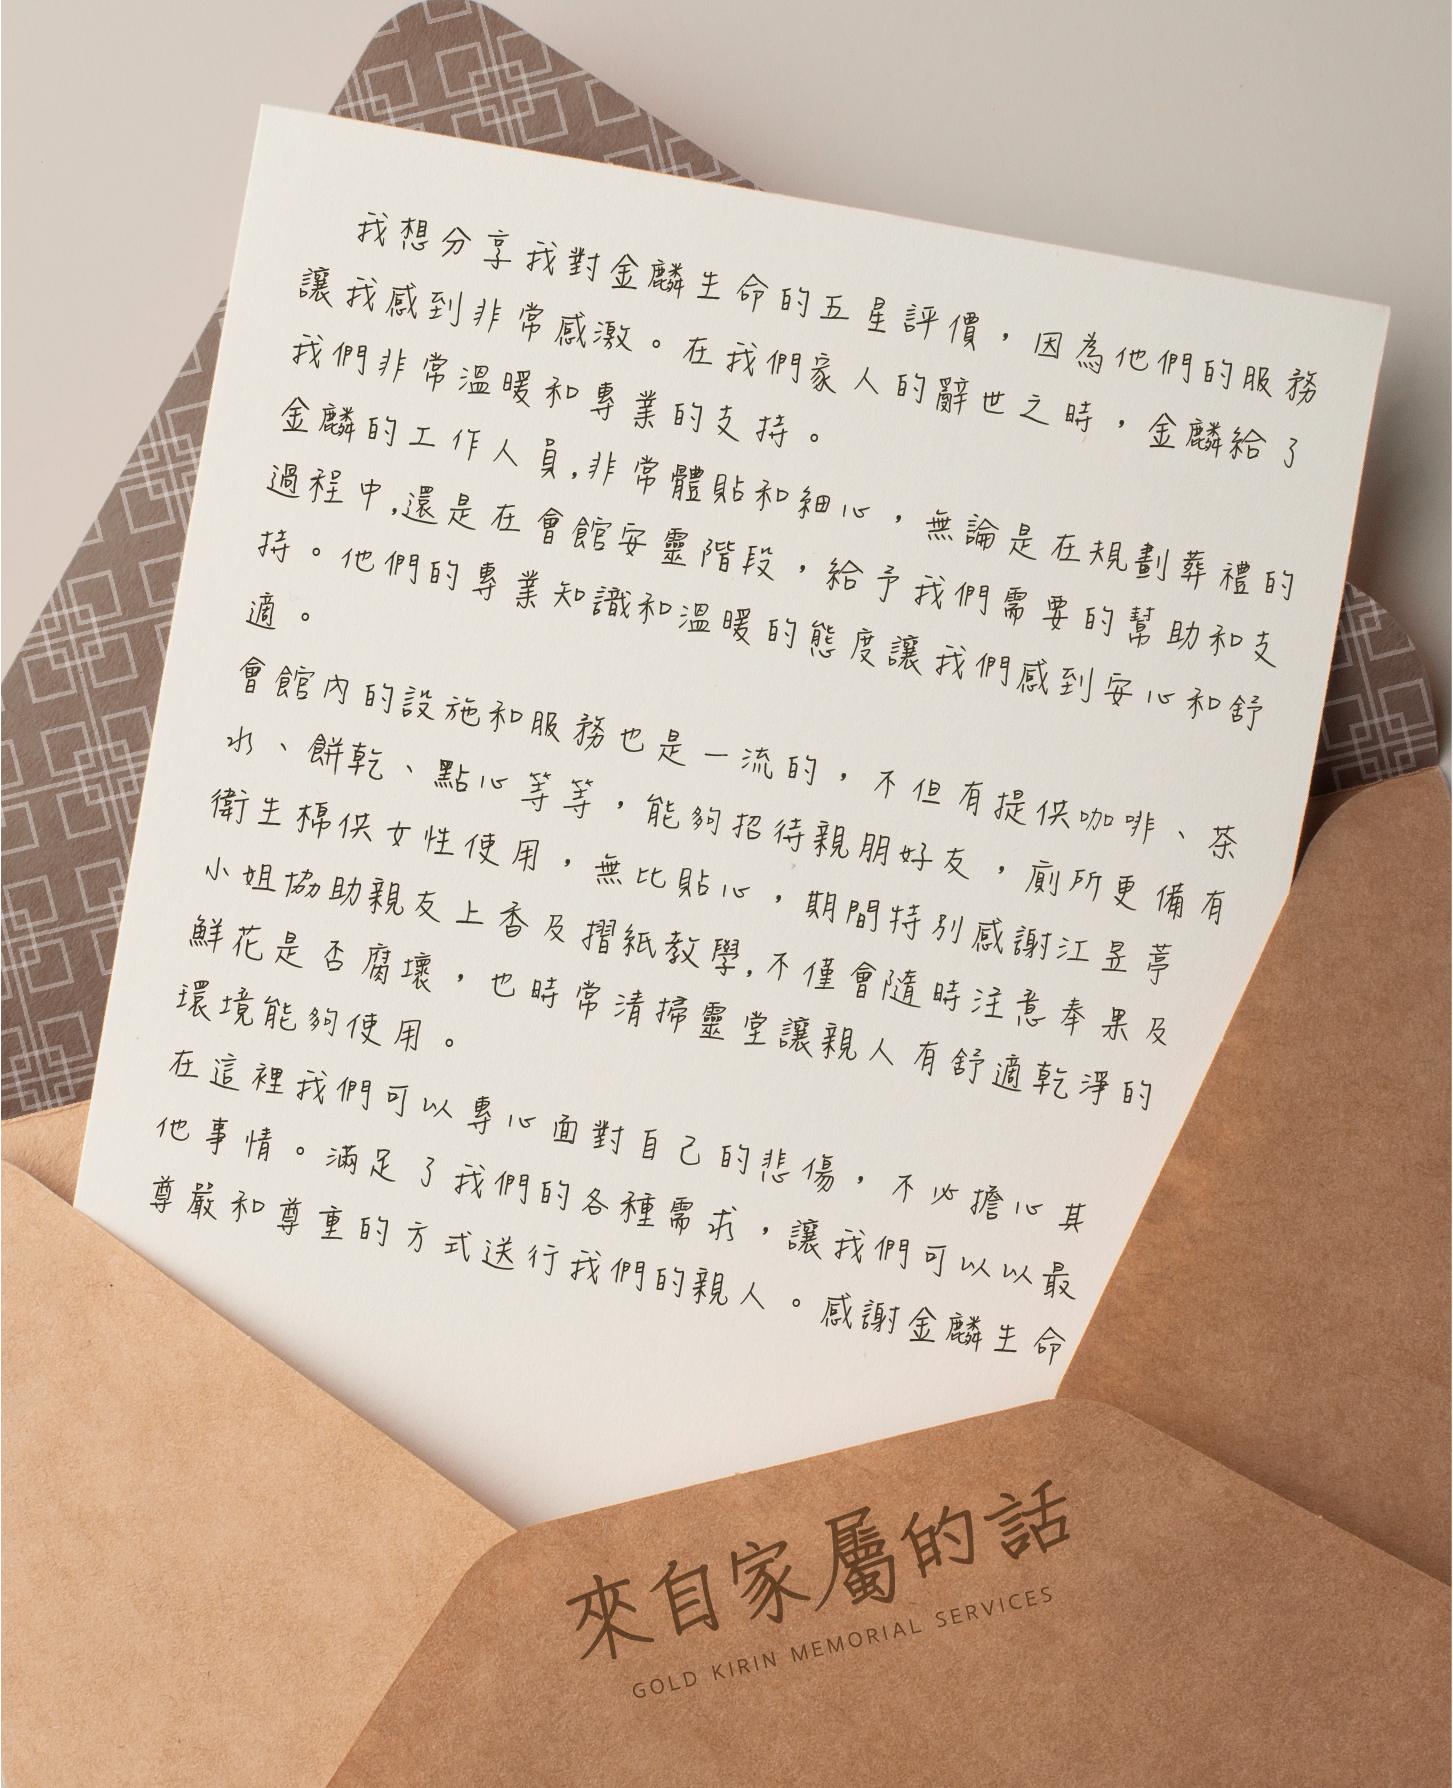 我想分享我對金麟生命的五星評價，因為他們的服務
讓我感到非常感激。在我們家人的辭世之時，金麟給了
我們非常溫暖和專業的支持。
金麟的工作人員,非常體貼和細心，無論是在規劃葬禮的
過程中,還是在會館安靈階段，給予我們需要的幫助和支
持。他們的專業知識和溫暖的態度讓我們感到安心和舒
適。
會館內的設施和服務也是一流的，不但有提供咖啡、茶
水、餅乾、點心等等，能夠招待親朋好友，廁所更備有
衛生棉供女性使用，無比貼心，期間特別感謝江昱葶
小姐協助親友上香及摺紙教學,不僅會隨時注意奉果及
鮮花是否腐壞，也時常清掃靈堂讓親人有舒適乾淨的
環境能夠使用。
在這裡我們可以專心面對自己的悲傷，不必擔心其
他事情。滿足了我們的各種需求，讓我們可以以最
尊嚴和尊重的方式送行我們的親人。感謝金麟生命
來自家屬的話
GOLD KIRIN MEMORIAL SERVICES